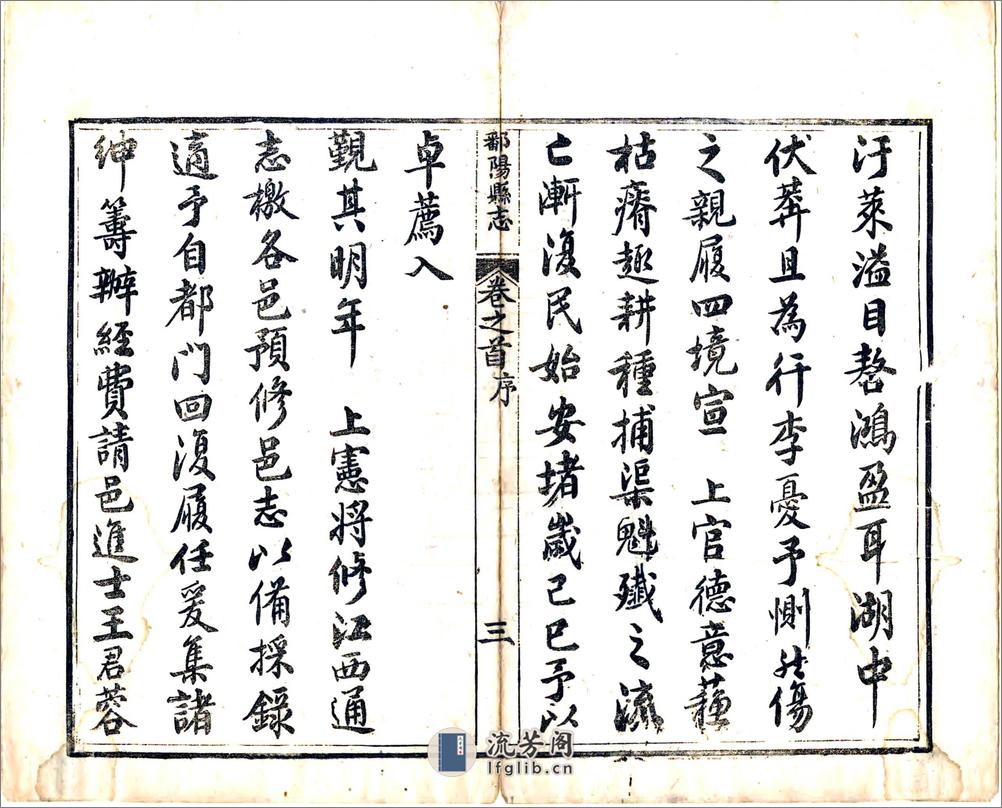 汙萊溢目嗸鴻盈耳湖中
伏莽且為行李憂予惻然傷
之親履四境宣　上官德意蘇
枯瘠趣耕種捕渠魁殲之流
亡漸復民始安堵歲己巳予以
鄱陽縣志　卷之首序　三
卓薦入
覲其明年　上憲將修江西通
志檄各邑預修邑志以備採錄
適予自都門回復履任爰集諸
紳籌辦經費請邑進士王君蓉
流芳阁
lfglib.cn